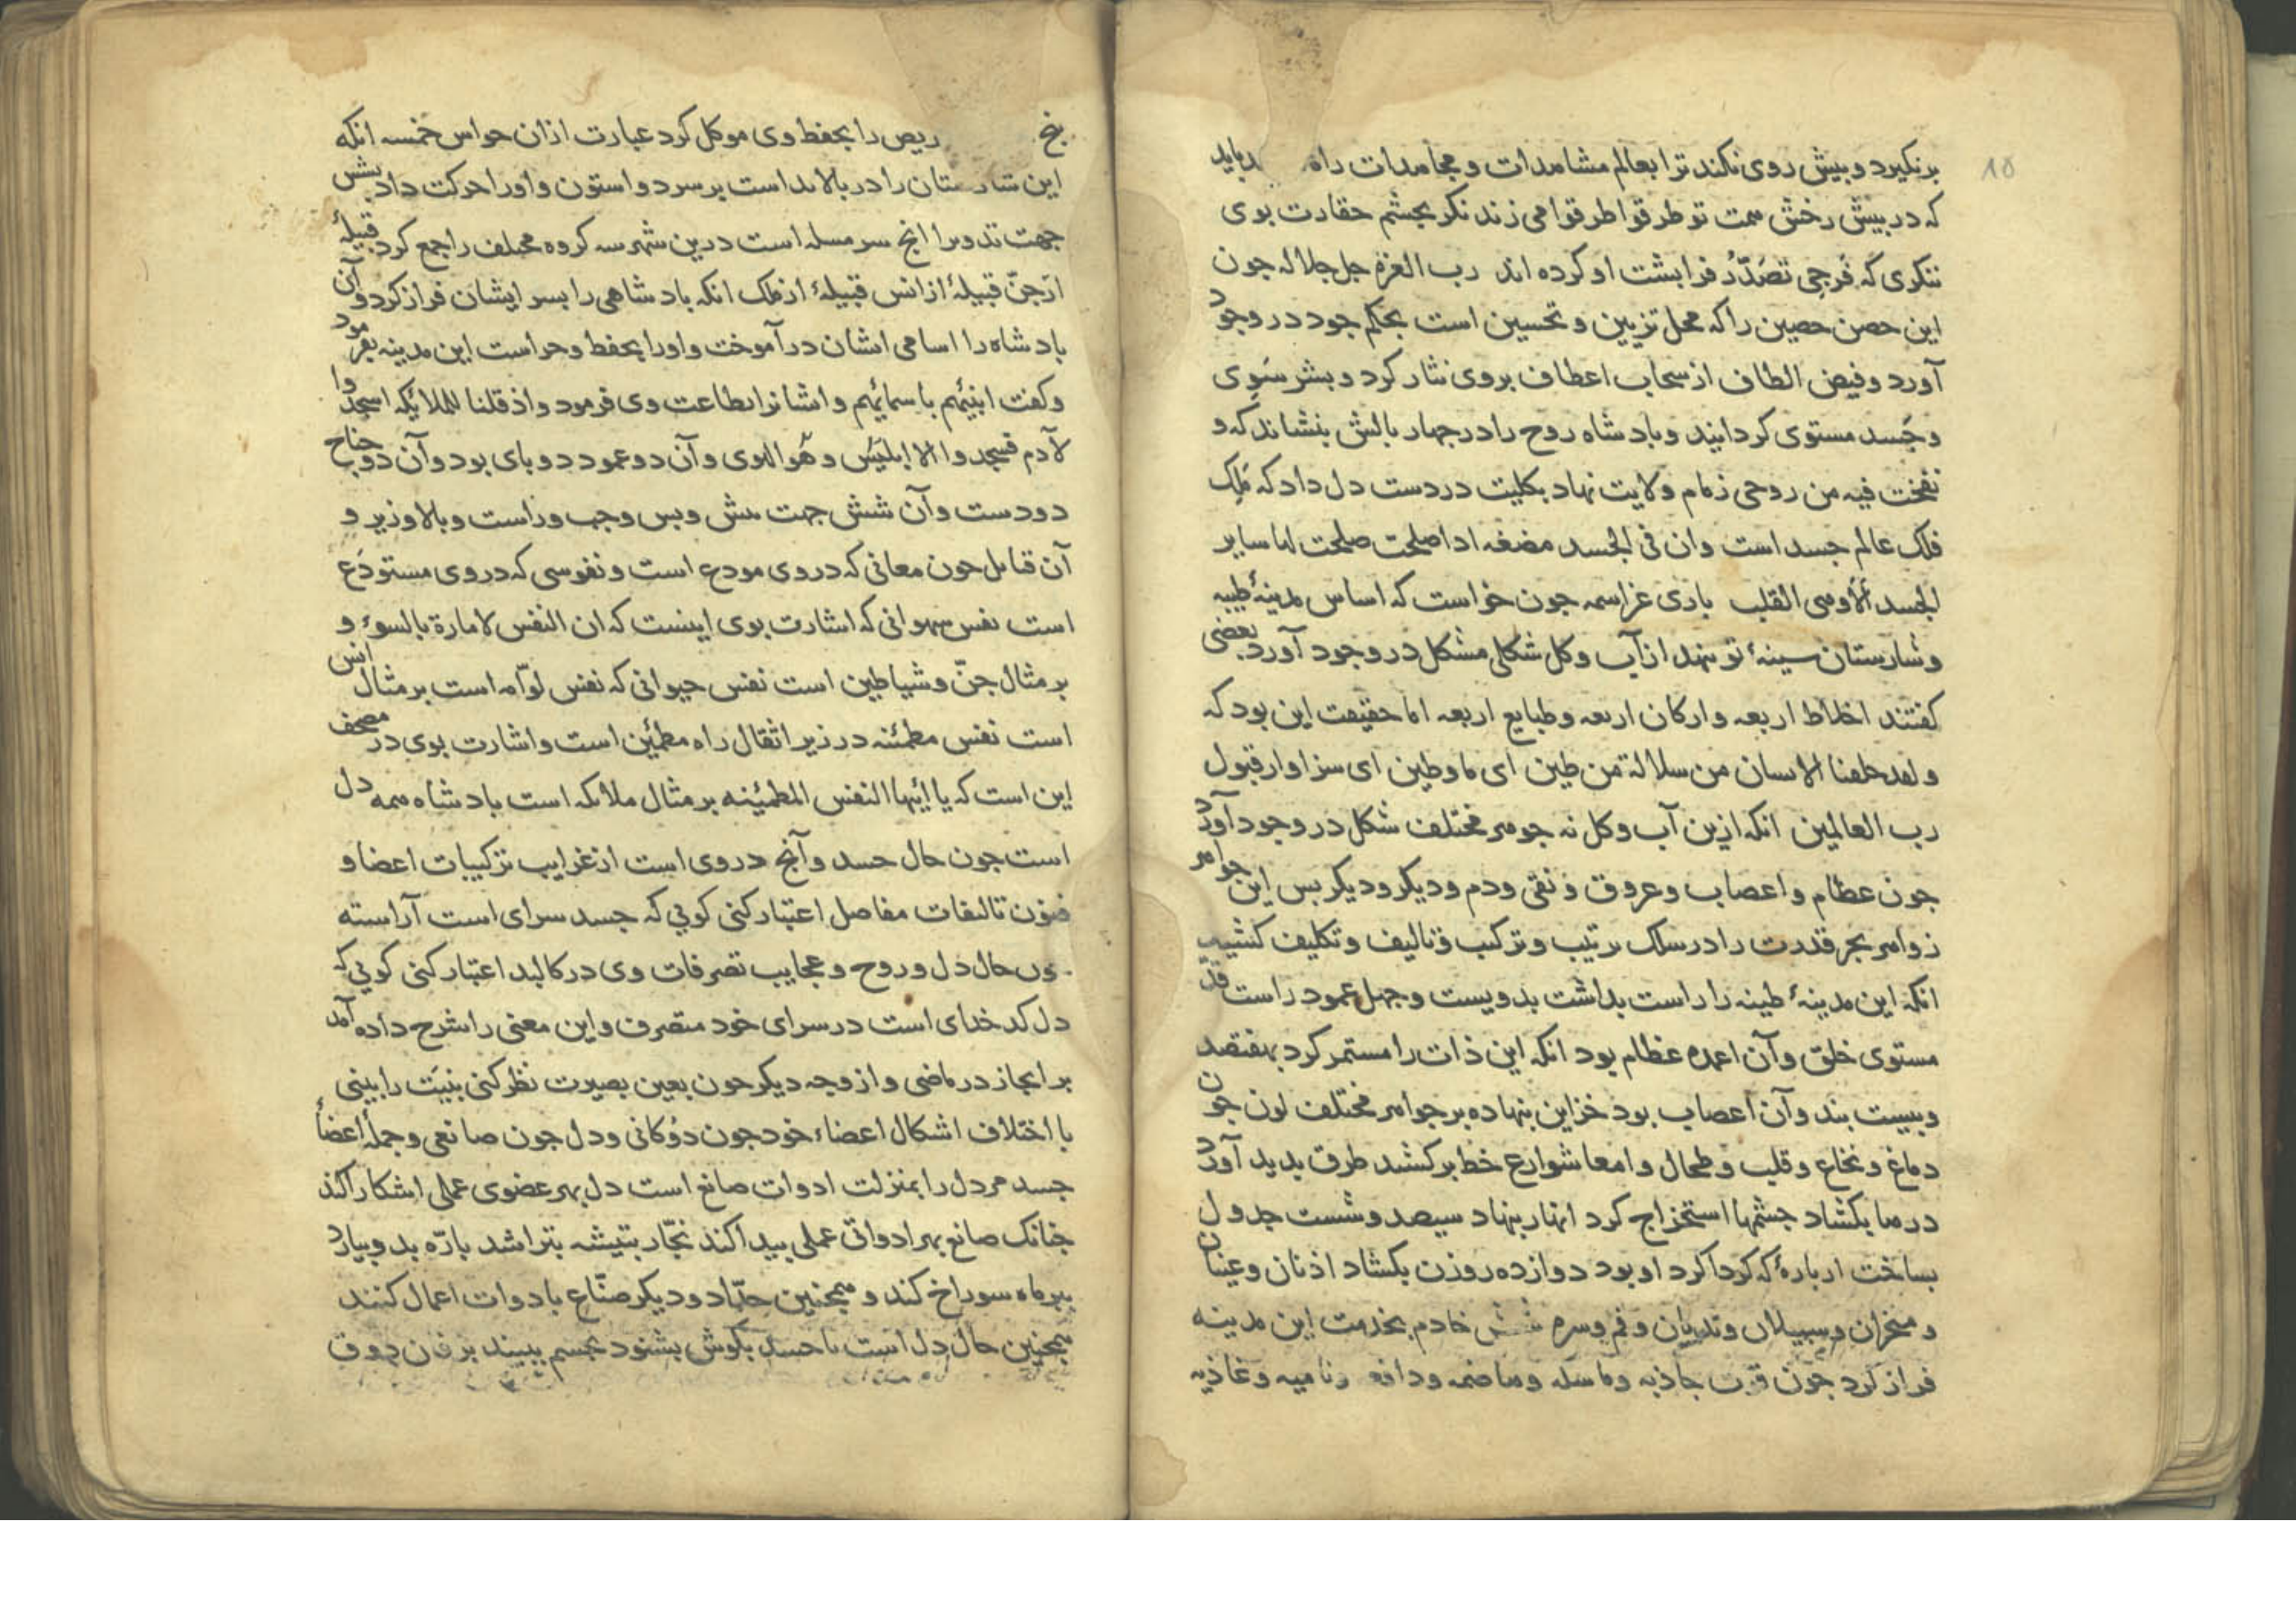 ۱۵
برنکیرد و پیش روی نکند ترا بعالم مشاهدات و مجاهدات راه
که در پیش رخش همت تو طرقوا طرقوا می زند نکر بچشم حقارت بوی
ننکری که فرجی تصدّر فرا پشت او کرده اند رب العزة جل جلاله جون
این حصن حصین را که محل تزیین و تحسین است بحکم جود در وجود
آورد و فیض الطاف از سحاب اعطاف بر وی نثار کرد و بشر سوی
و جسد مستوی کردانید و بادشاه روح را در جهار بالش بنشاند که و
نفخت فیه من روحی زمام ولایت نهاد بکلیت در دست دل داد که ملک
فلک عالم جسد است وان فی الجسد مضغه اذا صلحت صلحت لها سایر
الجسد ألا وهی القلب باری عز اسمه جون خواست که اساس مدینهٔ طیبه
و شارستان سینهٔ تو نهد از آب و کل شکلی مشکل در وجود آورد بعضی
کفتند اخلاط اربعه و ارکان اربعه و طبایع اربعه اما حقیقت این بود که
و لقد خلقنا الانسان من سلالة من طین ای ما و طین ای سزاوار قبول
رب العالمین انکه ازین آب و کل نه جوهر مختلف شکل در وجود آورد
جون عظام و اعصاب و عروق و نقی و دم و دیکر و دیکر بس این جواهر
زواهر بحر قدرت را در سلک ترتیب و ترکیب و تالیف و تکلیف کشید
انکه این مدینهٔ طینه را راست بداشت بدویست و جهل عمود راست قد
مستوی خلق و آن اعمده عظام بود انکه این ذات را مستمر کرد بهفتصد
و بیست بند و آن اعصاب بود خزاین بنهاده بر جواهر مختلف لون جون
دماغ و نخاع و قلب و طحال و امعا شوارع خط برکشید طرق بدید آورد
درها بکشاد جشمها استخراج کرد انهار بنهاد سیصد و شست جدول
بساخت از بارهٔ که کرداکرد او بود دوازده روزن بکشاد اذنان و عینان
و منخران و سبیلان و ثدییان و فم و سره شش خادم بخدمت این مدینه
فراز کرد جون قوت جاذبه و ماسکه و هاضمه و دافعه و نامیه و غاذیه
ریص را بحفظ وی موکل کرد عبارت ازان حواس خمسه انکه
این شارستان را در بالا بداشت بر سر دو استون و اورا حرکت داد بشش
جهت تدویرا انج سر مسله است درین شهر سه کروه مختلف را جمع کرد قبیلهٔ
از جنّ قبیلهٔ از انس قبیلهٔ از ملک انکه بادشاهی را بسر ایشان فراز کرد و آن
بادشاه را اسامی ایشان در آموخت و اورا بحفظ و حراست این مدینه بفرمود
و کفت انبئهم باسمائهم و ایشانرا بطاعت وی فرمود و اذ قلنا للملائکه اسجدوا
لآدم فسجدوا الا ابلیس و هو الهوی و آن دو عمود دو بای بود و آن دو جناح
دو دست و آن شش جهت پیش و پس و جب و راست و بالا و زیر و
آن قبایل جون معانی که در وی مودع است و نفوسی که در وی مستودع
است نفس شهوانی که اشارت بوی اینست که ان النفس لامارة بالسوء و
بر مثال جنّ و شیاطین است نفس حیوانی که نفس لوّامه است بر مثال انس
است نفس مطمئنه در زیر اثقال راه مطمئن است و اشارت بوی در مصحف
این است که یا ایتها النفس المطمئنه بر مثال ملائکه است بادشاه همه دل
است جون حال جسد و آنج در وی است از غرایب ترکیبات اعضا و
فنون تالیفات مفاصل اعتبار کنی کویی که جسد سرای است آراسته
حال دل و روح و عجایب تصرفات وی در کالبد اعتبار کنی کویی که
دل کدخدای است در سرای خود متصرف و این معنی را شرح داده آمد
بر ایجاز در ماضی و از وجه دیکر جون بعین بصیرت نظر کنی بنیت را بینی
با اختلاف اشکال اعضاء خود جون دوکانی و دل جون صانعی و جملهٔ اعضاء
جسد مر دل را بمنزلت ادوات صانع است دل بهر عضوی عملی اشکارا کند
جنانک صانع بهر اداوتی عملی بیدا کند نجّار بتیشه بتراشد بارّه بدو بیارد
ببرماه سوراخ کند و همجنین حدّاد و دیکر صنّاع با دوات اعمال کنند
همجنین حال دل است با جسد بکوش بشنود بجشم ببیند بزفان ذوق